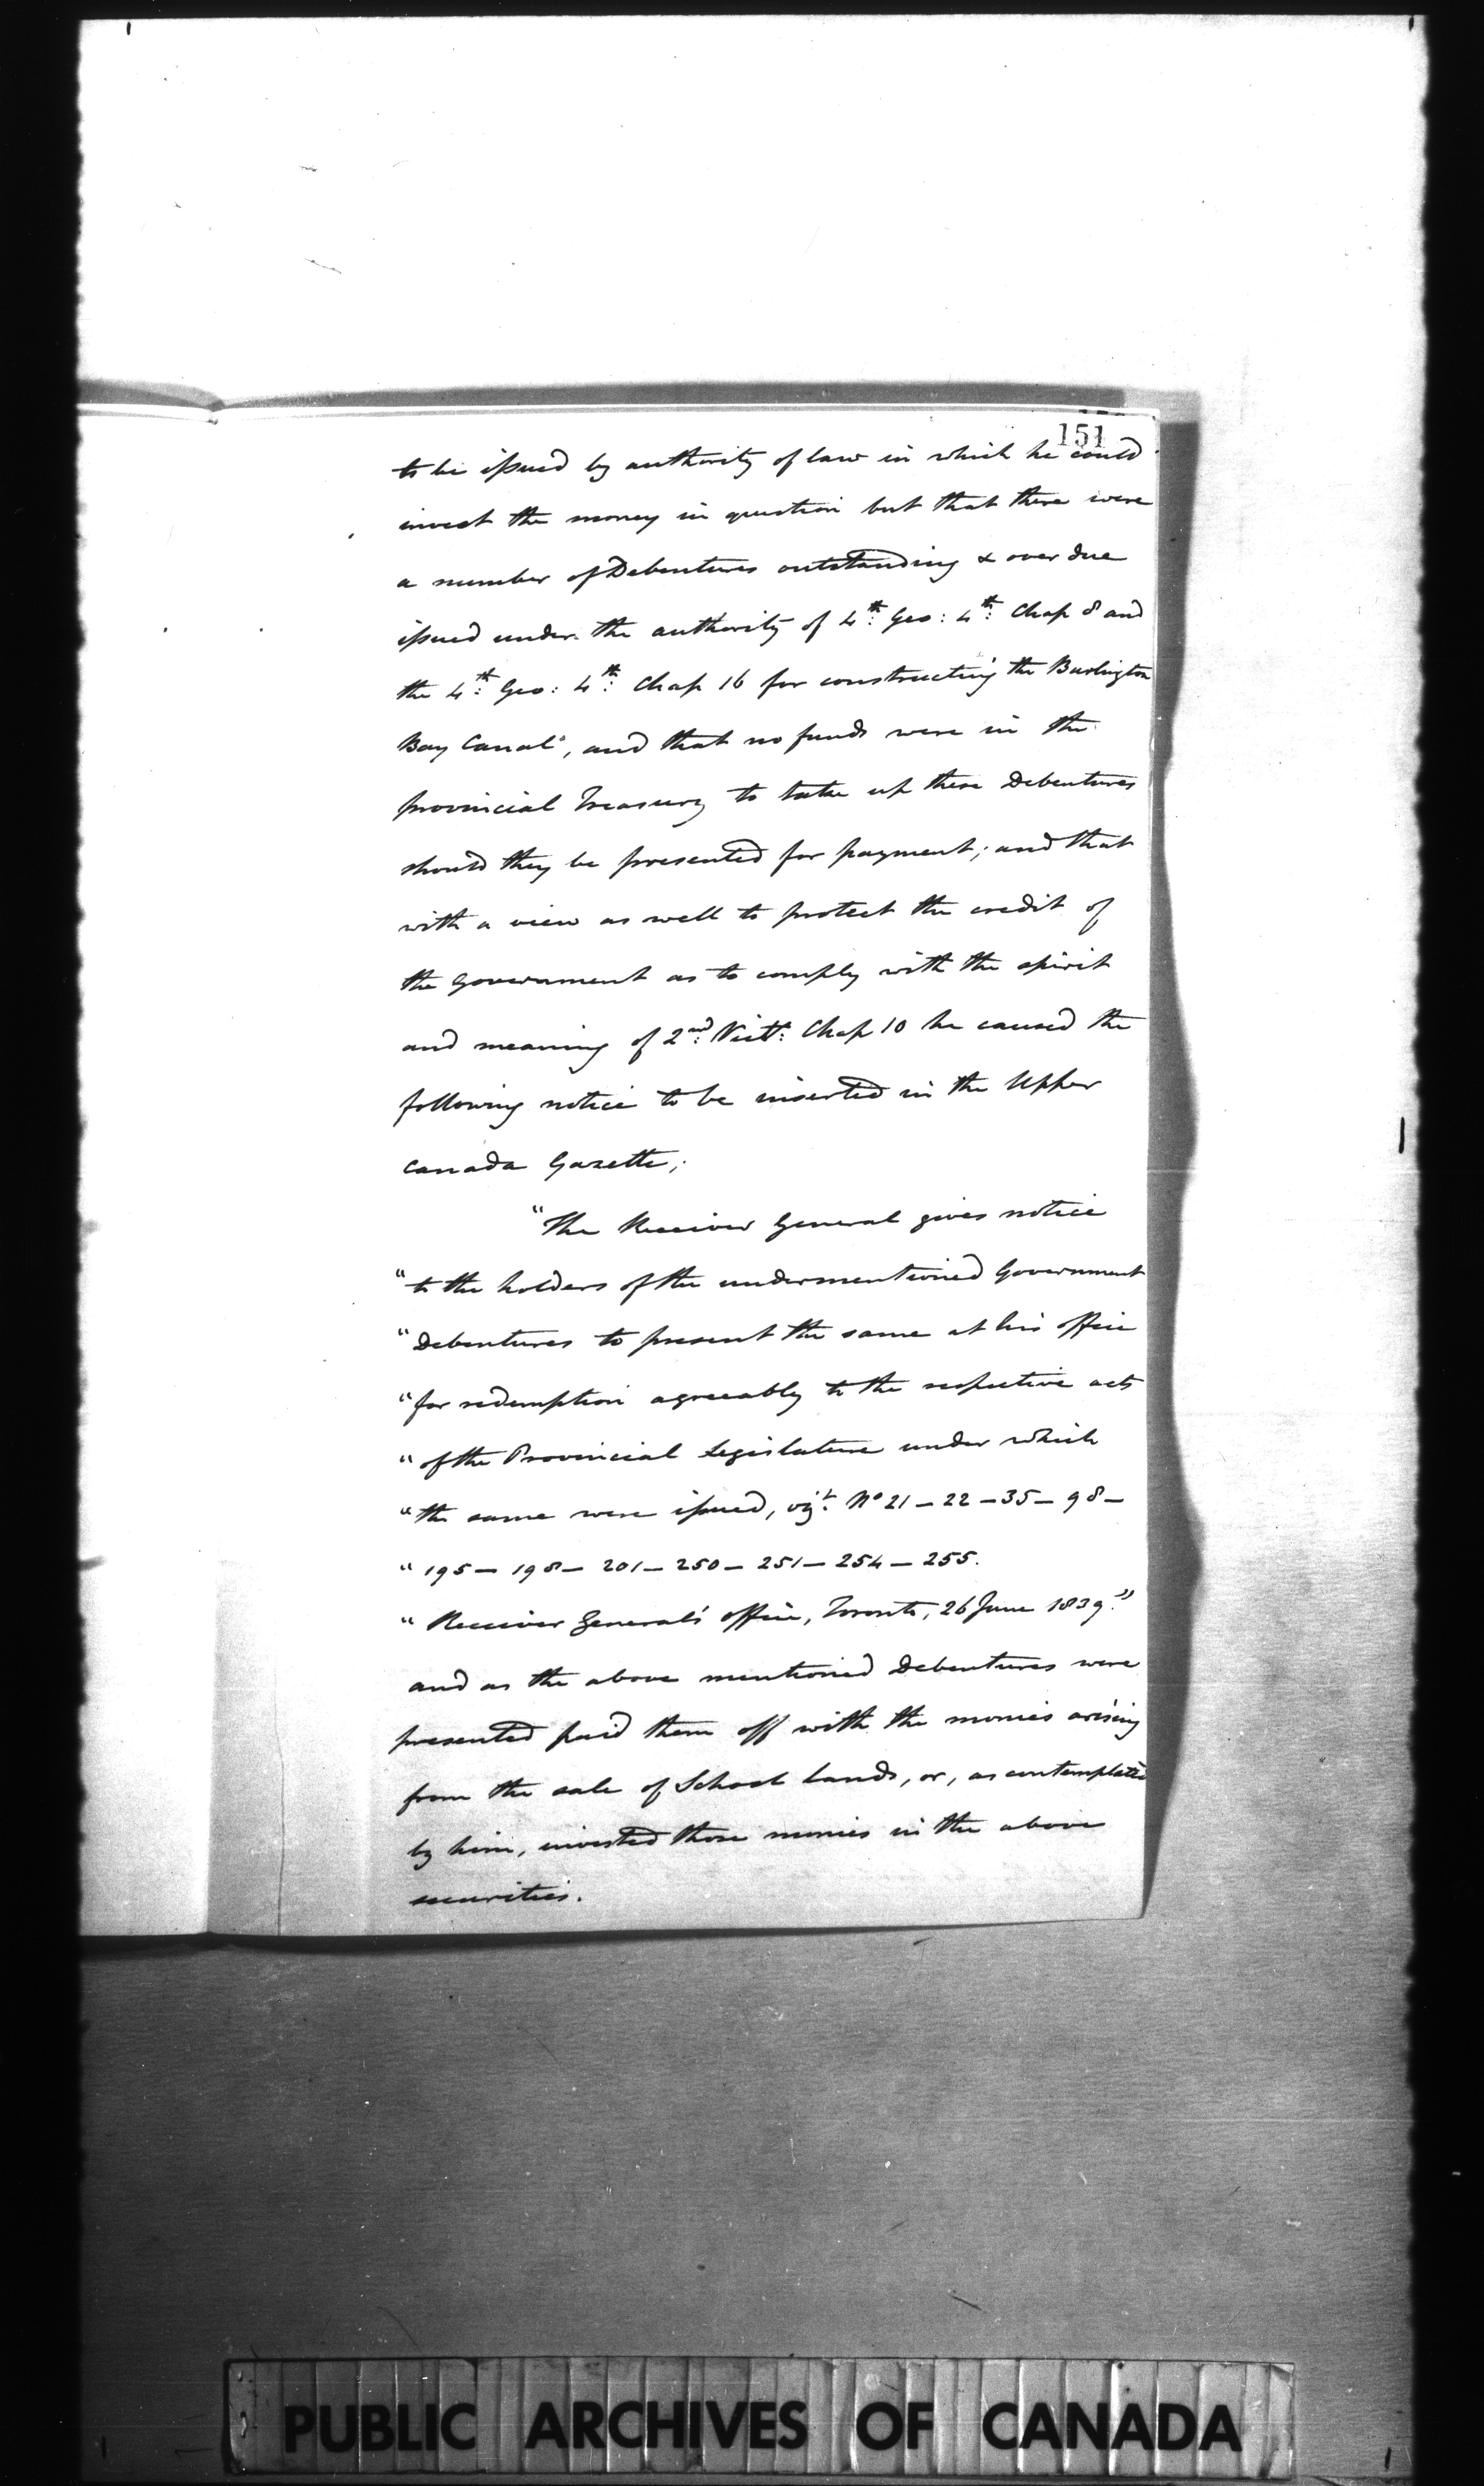 151
to be issued by authority of law in which he could
invest the money in question but that there were
a number of Debentures outstanding & over due
issued under the authority of 4th Geo: 4th Chap 8 and
the 4th Geo: 4th Chap 16 for constructing the Burlington
Bay Canal", and that no funds were in the
provincial Treasury to take up these Debentures
should they be presented for payment; and that
with a view as well to protect the credit of
the Government as to comply with the spirit
and meaning of 2nd Vict: Chap 10 he caused the
following notice to be inserted in the Upper
Canada Gazette;
"The Receiver General gives notice
"to the holders of the undermentioned Government
"Debentures to present the same at his office
"for redemption agreeably to the respective acts
"of the Provincial Legislature under which
"the same were issued, vizt. No 21 – 22 – 35 – 98 –
"195 – 198 – 201 – 250 – 251 – 254 – 255.
"Receiver General's office, Toronto, 26 June 1839."
and as the above mentioned Debentures were
presented paid them off with the monies arising
from the sale of School lands, or, as contemplated
by him, invested those monies in the above
securities.
PUBLIC ARCHIVES OF CANADA